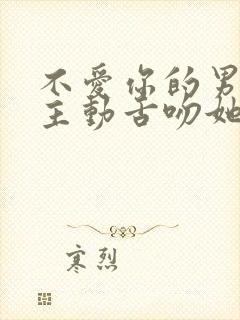 不爱你的男
主動舌吻她
寒烈